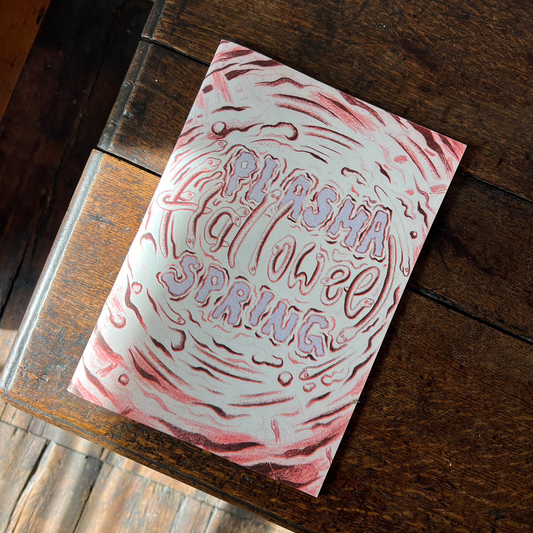 PLASMA
Hallowed
SPRING